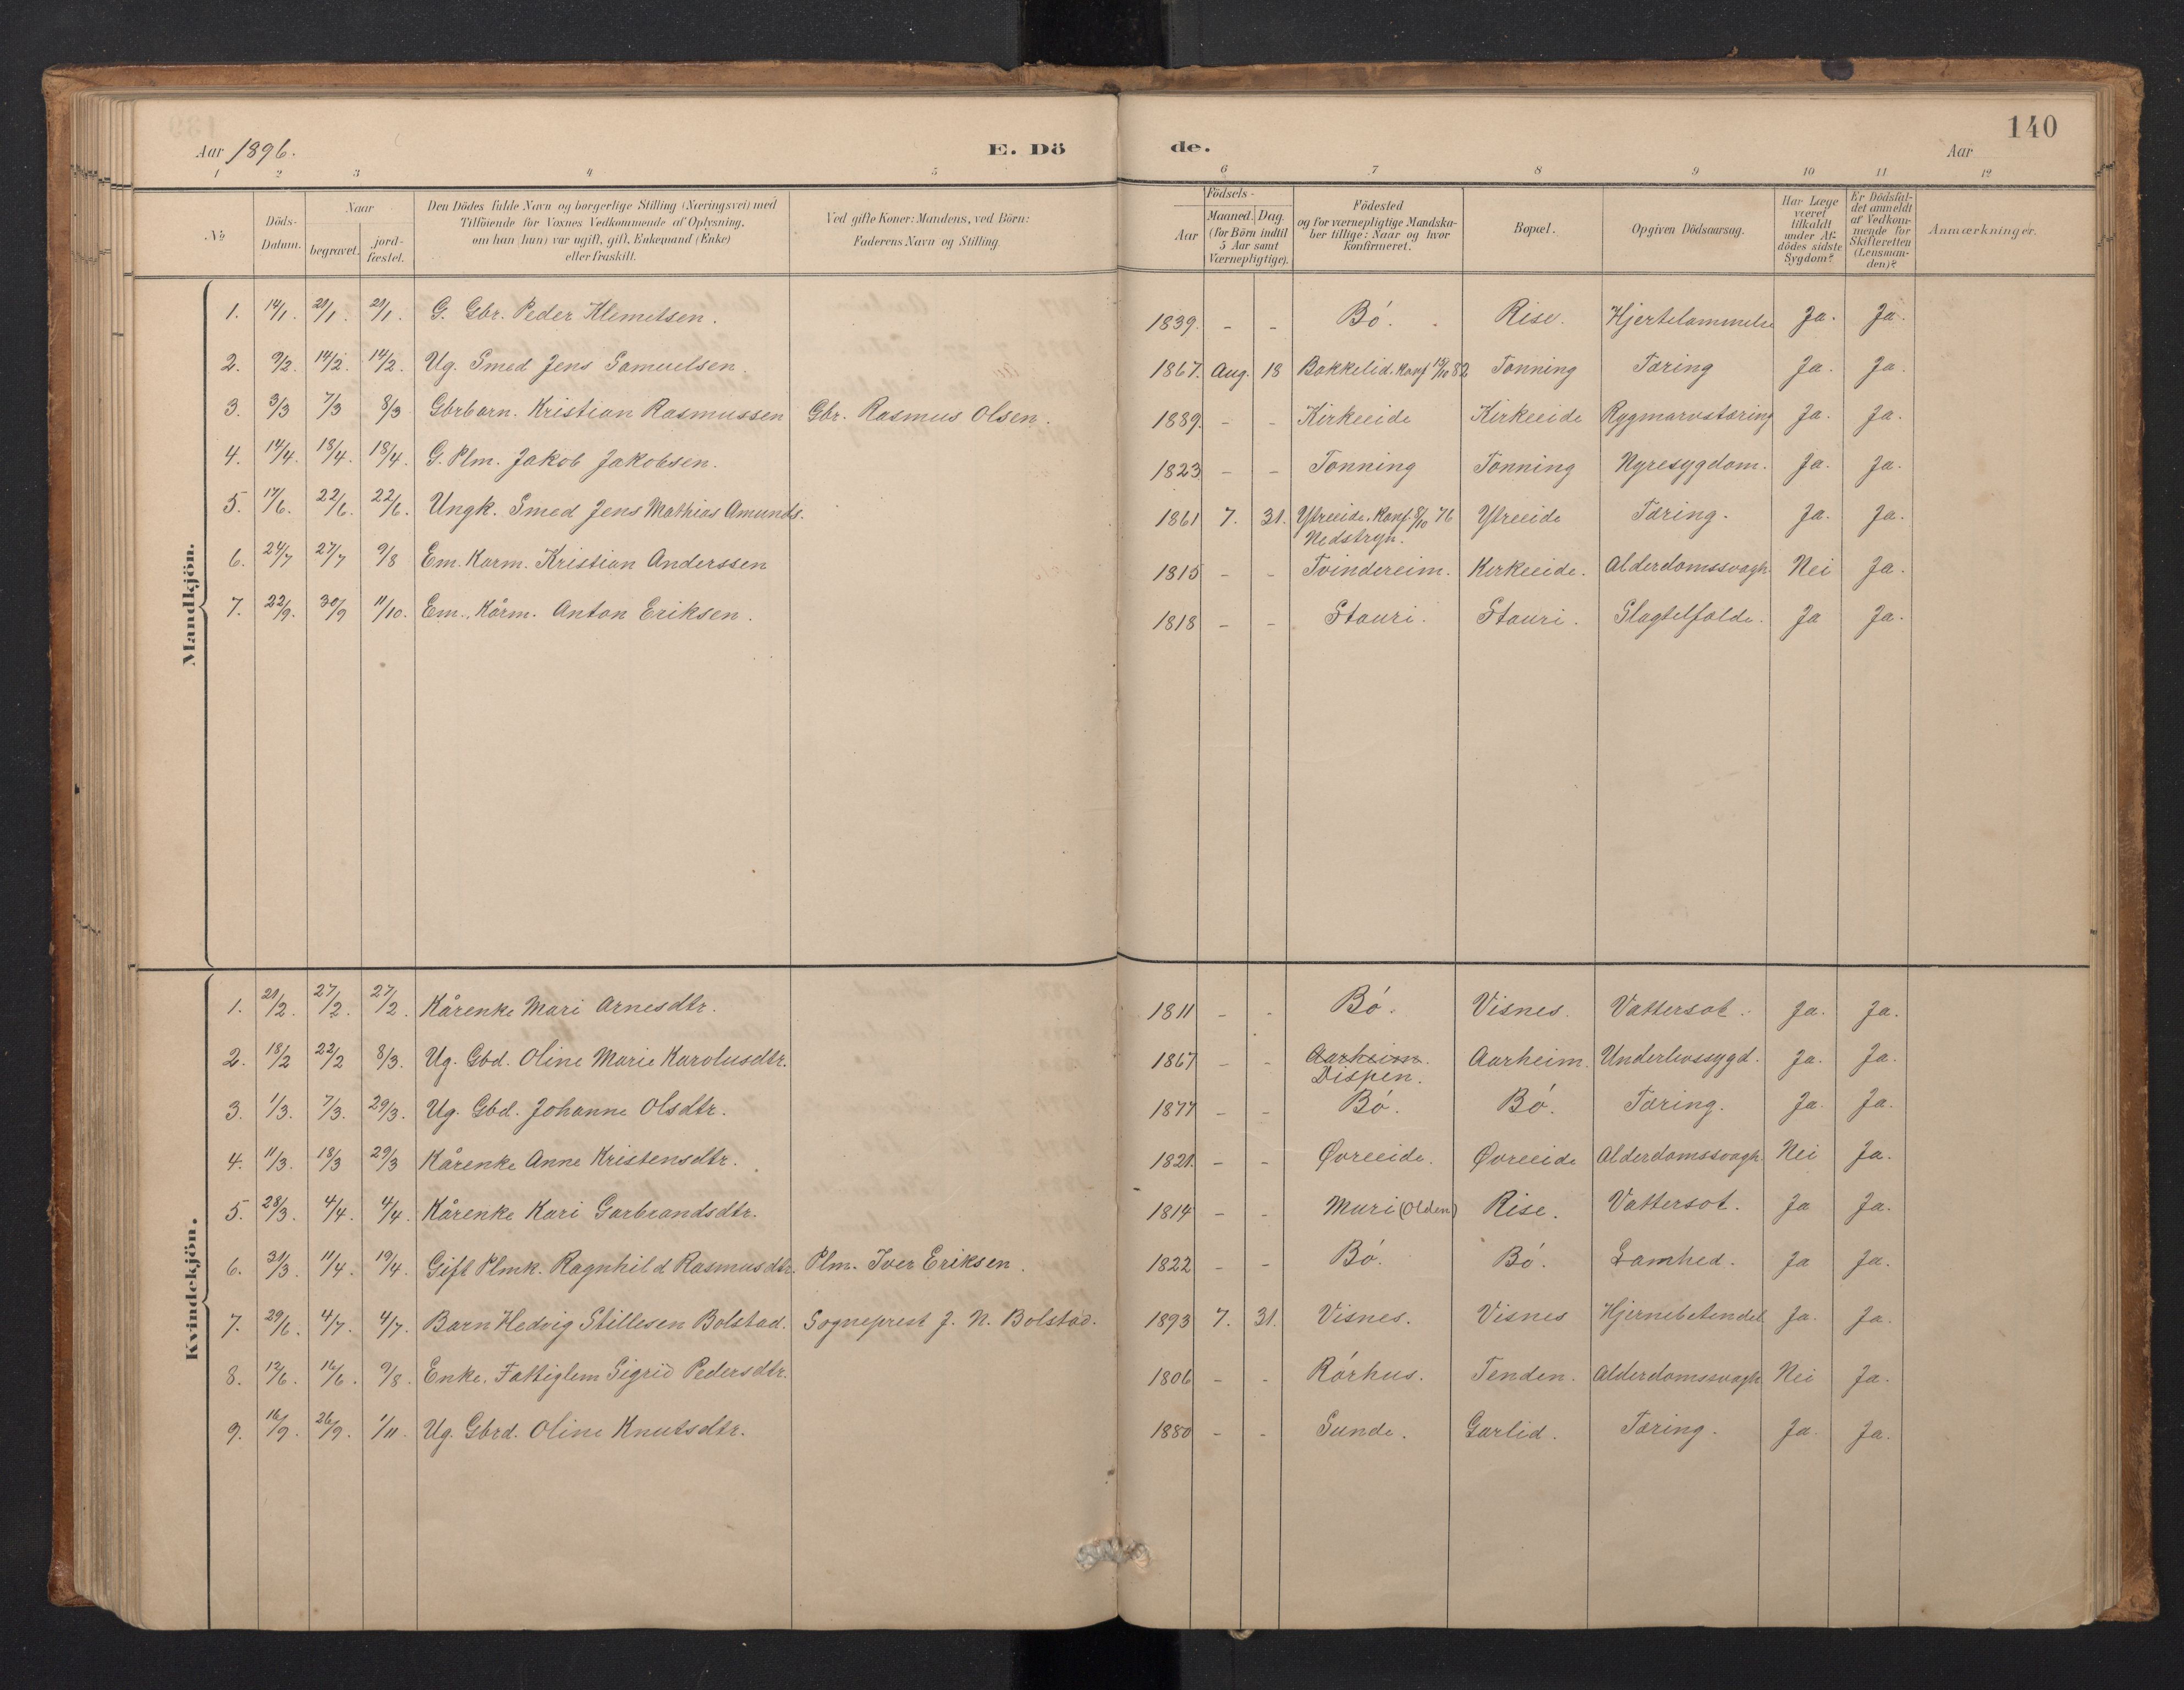 140
Aar 1896. E. Dö de. Aar
1 2 3 4 5 6 7 8 9 10 11 12
No
Döds-
Datum.
Naar
begravet.
jord-
fæstet.
Den Dödes fulde Navn og borgerlige Stilling (Næringsvei) med
Tilföiende for Voxnes Vedkommende af Oplysning,
om han (hun) var ugift, gift, Enkemand (Enke)
eller fraskilt.
Ved gifte Koner: Mandens, ved Börn:
Faderens Navn og Stilling.
Födsels-
Aar
Maaned. Dag.
(for Börn indtil
5 Aar samt
Værnepligtige).
Födested
og for værnepligtige Mandska-
ber tillige: Naar og hvor
Konfirmeret.
Bopæl.
Opgiven Dödsaarsag.
Har Læge
været
tilkaldt
under Af-
dödes sidste
Sygdom?
Er Dödsfal-
det anmeldt
af Vedkom-
mende for
Skifteretten
(Lensman-
den)?
Anmærkninger.
Mandkjön.
1. 14/1. 21/1. 21/1. G. Gbr. Peder Klemetsen. 1839. - - Bö. Rise. Hjertelammelse Ja. Ja.
2. 9/2. 14/2. 14/2. Ug. Smed Jens Samuelsen. 1867. Aug. 18 Bakkelid. Konf 82 Tonning Tæring Ja. Ja.
3. 3/3 7/3 8/3 Gbrbarn. Kristian Rasmussen Gbr. Rasmus Olsen. 1889. - - Kirkeeide Kirkeeide Rygmarvstæring Ja. Ja.
4. 14/4. 18/4. 18/4. G. Plm. Jakob Jakobsen. 1823 - - Tonning Tonning Nyresygdom. Ja. Ja.
5. 17/6. 22/6. 22/6. Ungk. Smed Jens Mathias Amunds. 1861 7. 31. Ytreeide. Konf. 8/10 76 Ytreeide Tæring. Ja. Ja.
Nedstryn.
6. 24/7 27/7 9/8 Em. Karm. Kristian Anderssen 1815 - - Tvindereim. Kirkeeide. Alderdomssvagh. Nei Ja.
7. 22/9. 30/9 11/10. Em., Kårm. Anton Eriksen. 1818 - - Stauri. Stauri. Slagtelfælde. Ja Ja.
Kvindekjön.
1. 21/2. 27/2. 27/2. Kårenke Mari Arnesdtr. 1811 - - Bö. Visnes. Vattersot. Ja. Ja.
2. 18/2 22/2 8/3. Ug. Gbd. Oline Marie Karolusdtr. 1867 - - Aarheim. Aarheim. Underlivssygd. Ja. Ja.
Dispen.
3. 1/3. 7/3. 29/3. Ug. Gbd. Johanne Olsdtr. 1877 - - Bö. Bö. Tæring. Ja. Ja.
4. 11/3. 18/3 29/3 Kårenke Anne Kristensdtr. 1821. - - Øvreeide. Øvreeide Alderdomssvagh. Nei Ja.
5. 28/3. 4/4. 4/4. Kårenke Kari Garbrandsdtr. 1814 - - Muri (Olden) Rise. Vattersot. Ja Ja.
6. 31/3. 11/4. 19/4. Gift Plmk. Ragnhild Rasmusdtr. Plm. Iver Eriksen. 1822 - - Bö. Bö. Lamhed. Ja Ja.
7. 29/6. 4/7. 4/7. Barn Hedvig Stillesen Bolstad. Sogneprest J. N. Bolstad. 1893 7. 31. Visnes. Visnes Hjernebetendel. Ja. Ja.
8. 12/6. 16/6. 9/8. Enke. Fattiglem Sigrid Pedersdtr. 1806 - - Rörhus. Tenden. Alderdomssvagh. Nei Ja.
9. 16/9. 26/9. 1/11. Ug. Gbrd. Oline Knutsdtr. 1880 - - Sunde. Garlid. Tæring. Ja. Ja.